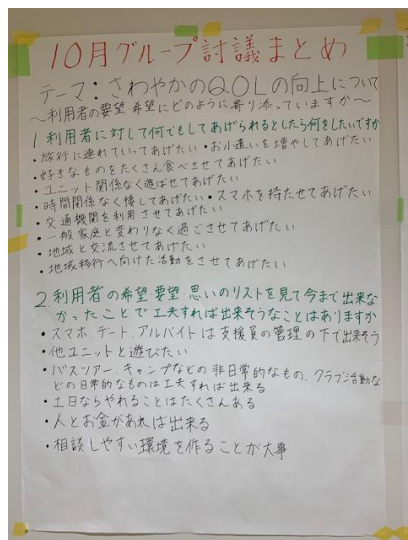 10月グループ討議まとめ
テーマ：さわやかのQOLの向上について
～利用者の要望 希望にどのように寄り添っていますか～
1. 利用者に対して何でもしてあげられるとしたら何をしたいですか
・旅行に連れていってあげたい ・お小遣いを増やしてあげたい
・好きなものをたくさん食べさせてあげたい
・ユニット関係なく遊ばせてあげたい
・時間関係なく寝してあげたい ・スマホを持たせてあげたい
・交通機関を利用させてあげたい
・一般家庭と変わりなく過ごさせてあげたい
・地域と交流させてあげたい
・地域移行へ向けた活動をさせてあげたい
2. 利用者の希望 要望・思いのリストを見て今まで出来な
かったことで工夫すれば出来そうなことはありますか
・スマホ、デート、アルバイトは支援員の管理の下で出来そう
・他ユニットと遊びたい
・バスツアー、キャンプなどの非日常的なもの、クラブ活動な
どの日常的なものは工夫すれば出来る
・土日ならやれることはたくさんある
・人とお金があれば出来る
・相談しやすい環境を作ることが大事